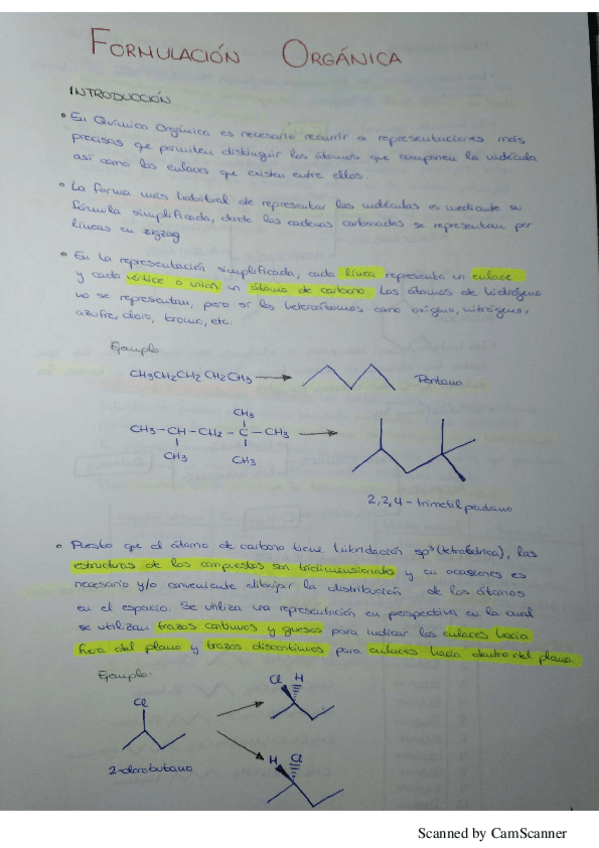 FORMULACIÓN ORGÁNICA
INTRODUCCIÓN
• En Química Orgánica es necesario recurrir a representaciones más
precisas que permiten distinguir los átomos que componen la molécula
así como los enlaces que existen entre ellos.
• La forma más habitual de representar las moléculas es mediante su
fórmula simplificada, donde las cadenas carbonadas se representan por
líneas en zigzag
• En la representación simplificada, cada línea representa un enlace
y cada vértice o unión un átomo de carbono. Los átomos de hidrógeno
no se representan, pero sí los heteroátomos como oxígeno, nitrógeno,
azufre, cloro, bromo, etc.
Ejemplo
CH3CH2CH2CH2CH3 → Pentano
CH3
CH3-CH-CH2-C-CH3 →
CH3 CH3
2,2,4-trimetilpentano
• Puesto que el átomo de carbono tiene hibridación sp3 (tetraédrica), las
estructuras de los compuestos son tridimensionales y en ocasiones es
necesario y/o conveniente dibujar la distribución de los átomos
en el espacio. Se utiliza una representación en perspectiva en la cual
se utilizan trazos continuos y gruesos para indicar los enlaces hacia
fuera del plano y trazos discontinuos para enlaces hacia dentro del plano.
Ejemplo:
Cl H
Cl
2-clorobutano
H Cl
Scanned by CamScanner